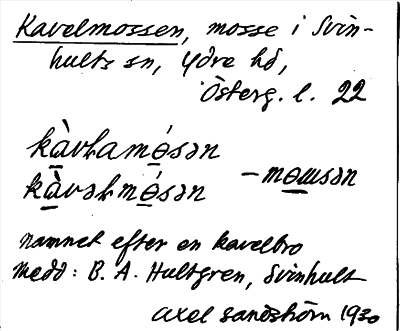 Kavelmossen, mosse i Svin-
hults sn, Ydre hd,
Österg. l. 22
kàvɫamǿsən
kàvəɫmǿsən
— møɯsən
namnet efter en kavelbro
Medd: B. A. Hultgren, Svinhult
Axel Sandström 1930